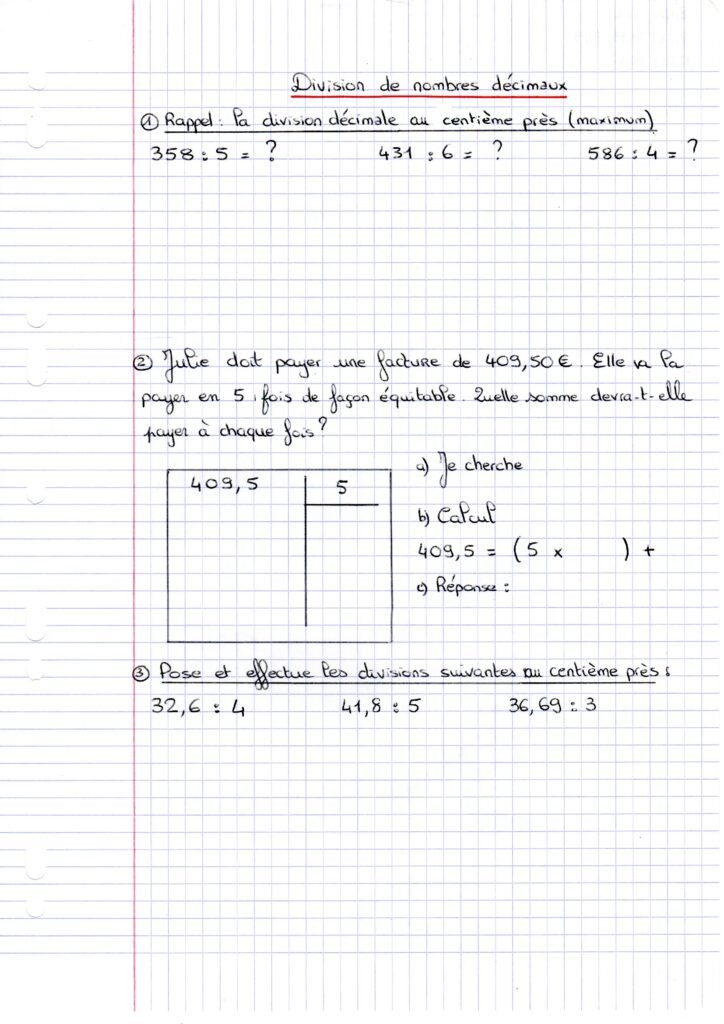 Division de nombres décimaux
① Rappel : la division décimale au centième près (maximum)
358 : 5 = ? 431 : 6 = ? 586 : 4 = ?
② Julie doit payer une facture de 409,50 €. Elle va la
payer en 5 fois de façon équitable. Quelle somme devra-t-elle
payer à chaque fois ?
409,5 5
a) Je cherche
b) Calcul
409,5 = (5 x ) +
c) Réponse :
③ Pose et effectue les divisions suivantes au centième près :
32,6 : 4 41,8 : 5 36,69 : 3